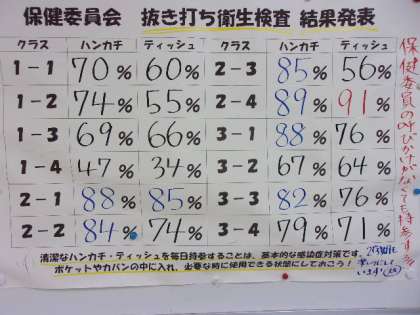 保健委員会 抜き打ち衛生検査 結果発表
クラス ハンカチ ティッシュ クラス ハンカチ ティッシュ
1-1 70% 60% 2-3 85% 56%
1-2 74% 55% 2-4 89% 91%
1-3 69% 66% 3-1 88% 76%
1-4 47% 34% 3-2 67% 64%
2-1 88% 85% 3-3 82% 76%
2-2 84% 74% 3-4 79% 71%
清潔なハンカチ・ティッシュを毎日持参することは、基本的な感染症対策です。
ポケットやカバンの中に入れ、必要な時に使用できる状態にしておこう!
保健委員の呼びかけがなくても持参